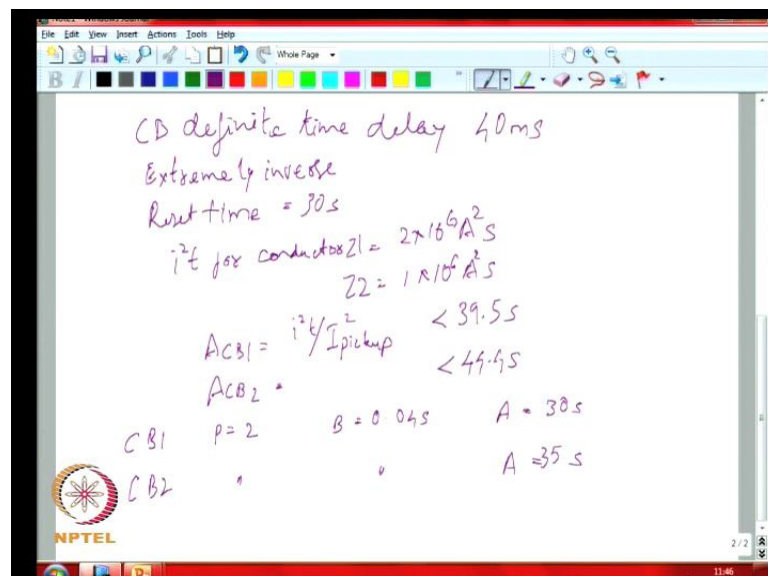 File Edit View Insert Actions Tools Help
Whole Page
B I
CB definite time delay 40ms
Extremely inverse
Reset time = 30s
i²t for conductor Z1 = 2×10⁶A²s
Z2 = 1×10⁶A²s
ACB1 = i²t/I²pickup < 39.5s
ACB2 = < 44.4s
CB1 P=2 B=0.04s A = 30s
CB2 " " A =35 s
NPTEL
2/2
11:46